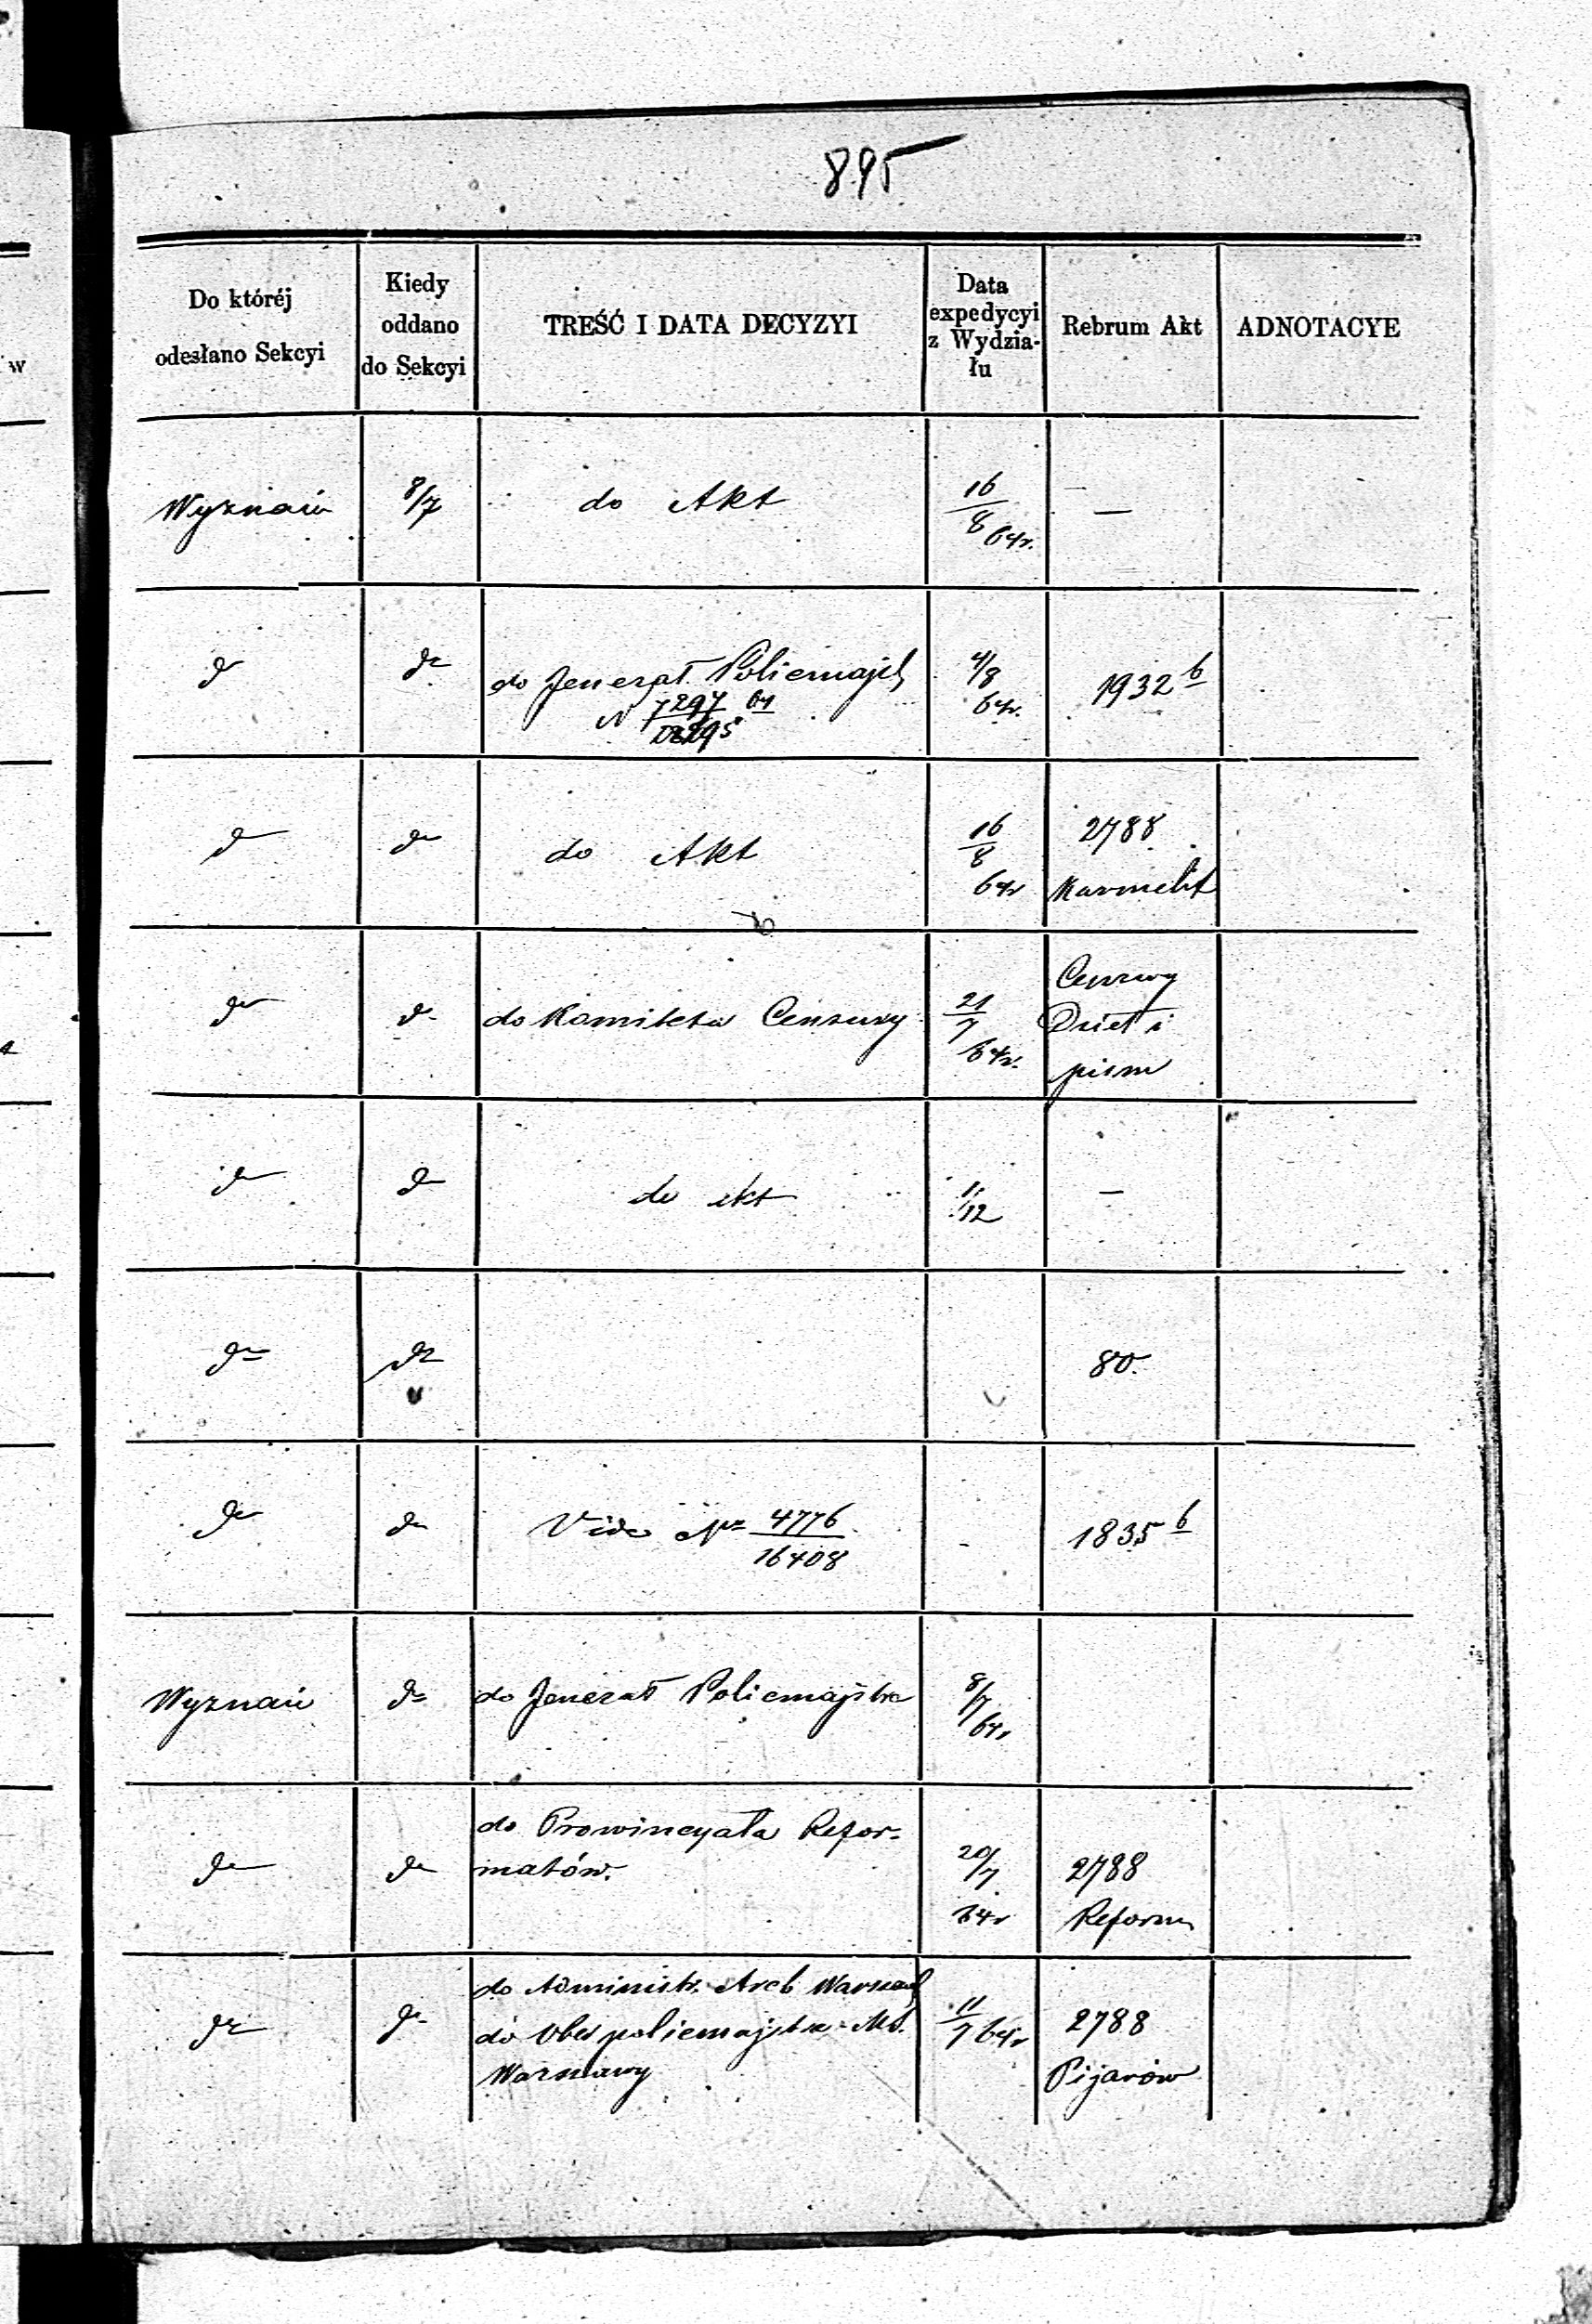 895
Do któréj
odesłano Sekcyi
Kiedy
oddano
do Sekcyi
TREŚĆ I DATA DECYZYI
Data
expedycyi
z Wydzia-
łu
Rebrum Akt
ADNOTACYE
Wyznań 8/7 do Akt 16/8 64r. —
do do do Jenerał Policmajst 4/8 64r. 1932 b
N 7297 64
do do do Akt 16/8 64r 2788
Karmelit
do do do Komitetu Cenzury 21/7 64r. Cenzury
Dzieł i
pism
do do do akt 1/12 —
do do 80.
do do Vide Nr 4776/16408 - 1835 b
Wyznań do do Jenerał Policmajstra 8/7 64r
do do do Prowincyała Refor-
matów. 20/7 64r 2788
Reform
do do do Administr. Arch Warszaw
do Ober policmajstra M. 11/7 64r 2788
Warszawy Pijarów